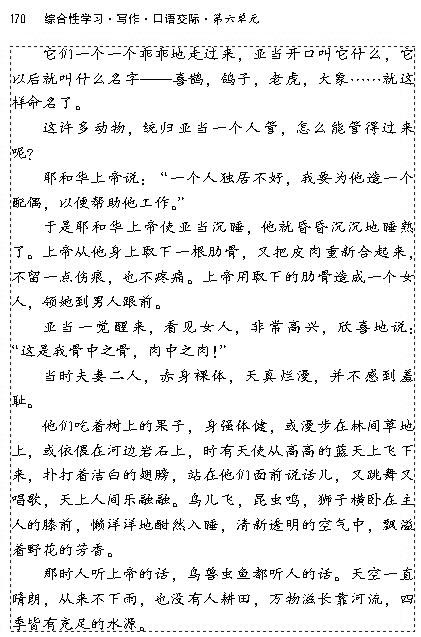 170 综合性学习·写作·口语交际·第六单元
它们一个一个乖乖地走过来，亚当开口叫它什么，它
以后就叫什么名字——喜鹊，鸽子，老虎，大象……就这
样命名了。
这许多动物，统归亚当一个人管，怎么能管得过来
呢？
耶和华上帝说：“一个人独居不好，我要为他造一个
配偶，以便帮助他工作。”
于是耶和华上帝使亚当沉睡，他就昏昏沉沉地睡熟
了。上帝从他身上取下一根肋骨，又把皮肉重新合起来，
不留一点伤痕，也不疼痛。上帝用取下的肋骨造成一个女
人，领她到男人跟前。
亚当一觉醒来，看见女人，非常高兴，欣喜地说：
“这是我骨中之骨，肉中之肉！”
当时夫妻二人，赤身裸体，天真烂漫，并不感到羞
耻。
他们吃着树上的果子，身强体健，或漫步在林间草地
上，或依偎在河边岩石上，时有天使从高高的蓝天上飞下
来，扑打着洁白的翅膀，站在他们面前说话儿，又跳舞又
唱歌，天上人间乐融融。鸟儿飞，昆虫鸣，狮子横卧在主
人的膝前，懒洋洋地酣然入睡，清新透明的空气中，飘溢
着野花的芳香。
那时人听上帝的话，鸟兽虫鱼都听人的话。天空一直
晴朗，从来不下雨，也没有人耕田，万物滋长靠河流，四
季皆有充足的水源。